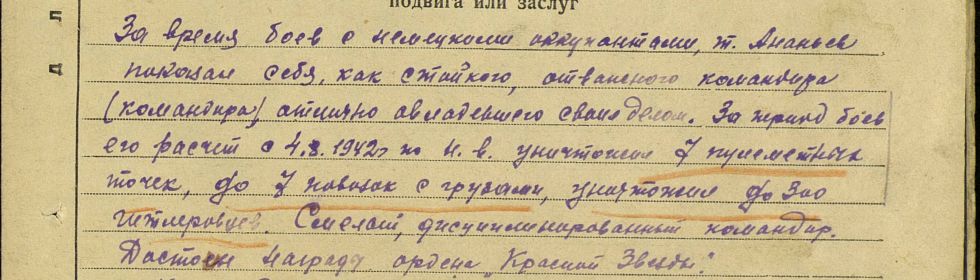 подвига или заслуг
За время боев с немецкими оккупантами, т. Ананьев
показал себя, как стойкого, отважного командира
(командира) отлично овладевшего своим делом. За период боев
его расчет с 4.8.1942г по н.в. уничтожил 7 пулеметных
точек, до 7 повозок с грузами, уничтожил до 300
гитлеровцев. Смелый, дисциплинированный командир.
Достоин награду ордена "Красной Звезды".